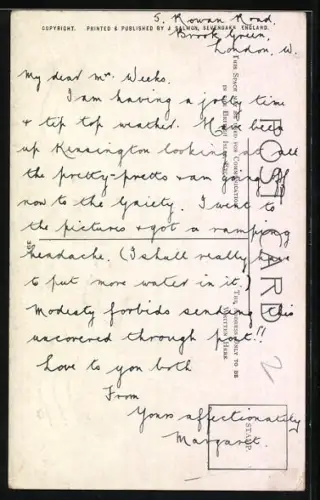 5. Rowan Road,
Brook Green,
London. W.
COPYRIGHT. PRINTED & PUBLISHED BY J. SALMON, SEVENOAKS, ENGLAND.
My dear Mrs Weeks.
I am having a jolly time
& tip top weather. Have been
up Kensington looking at all
the pretty-pretts & am going off
now to the Gaiety. I went to
the pictures & got a ramping
headache. (I shall really have
to put more water in it.)
Modesty forbids sending this
uncovered through post!!
Love to you both
From
Yours affectionately
Margaret.
POST CARD
THE ADDRESS ONLY TO BE
WRITTEN HERE.
STAMP.
2